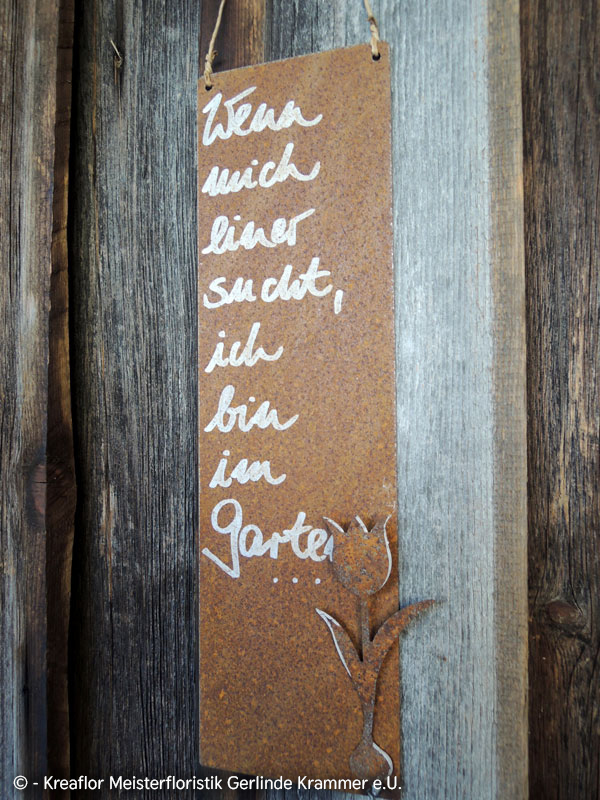 Wenn
mich
einer
sucht,
ich
bin
im
Garten
...
© - Kreaflor Meisterfloristik Gerlinde Krammer e.U.